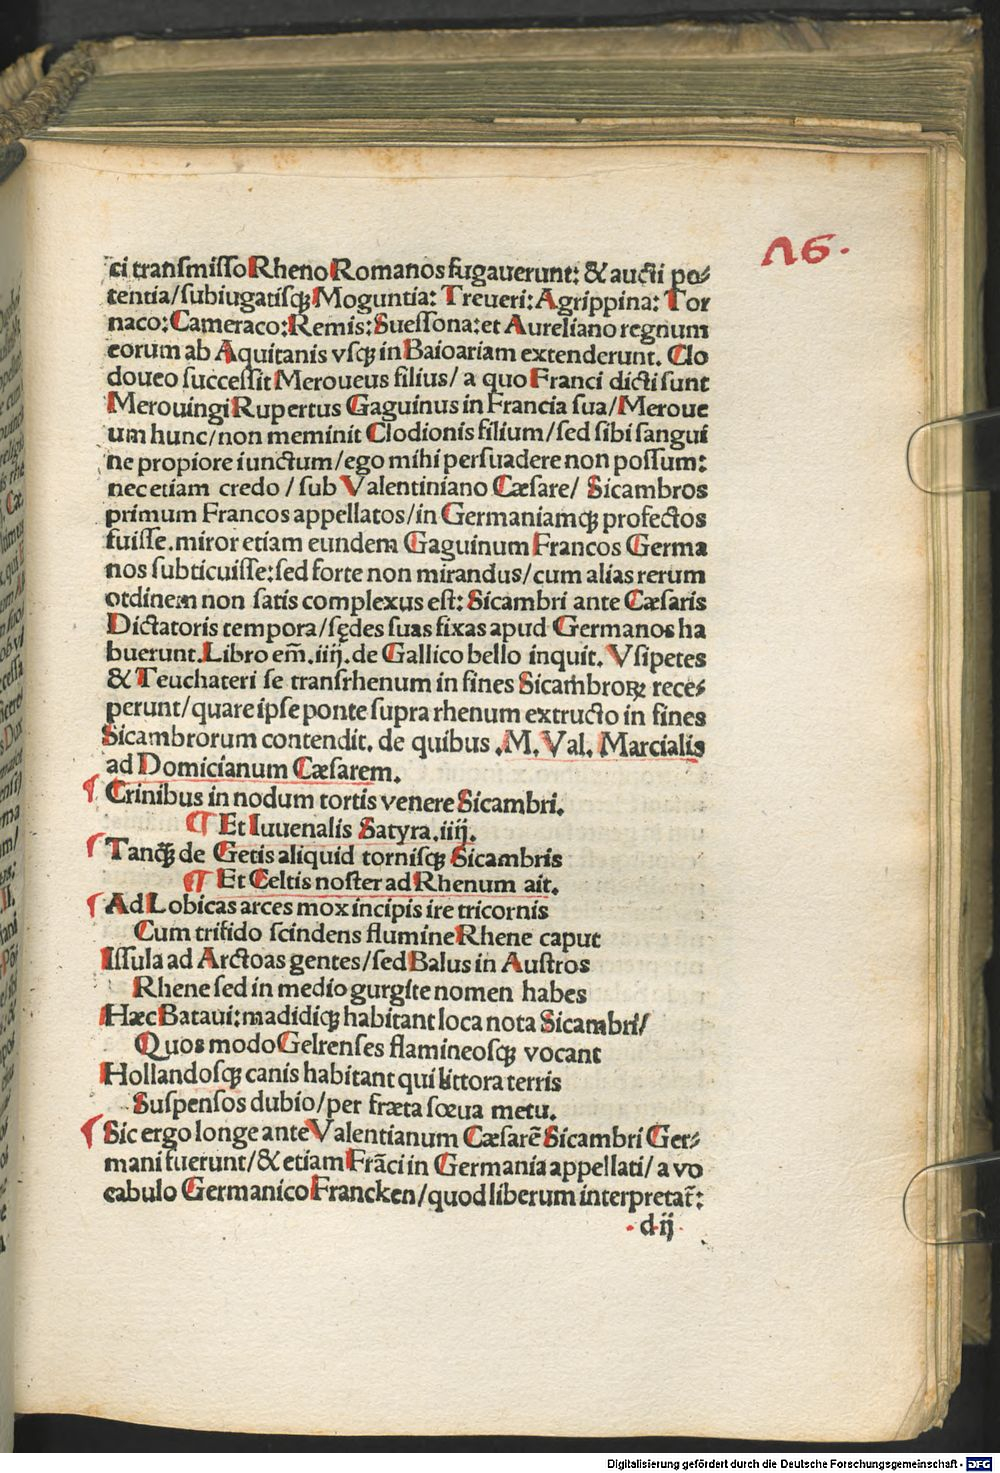 16.
ci transmisso Rheno Romanos fugauerunt: & aucti po⸗
tentia/subiugatisqꝫ Moguntia: Treueri: Agrippina: Tor
naco: Cameraco: Remis: Suessona: et Aureliano regnum
eorum ab Aquitanis vsqꝫ in Baioariam extenderunt. Clo
doueo successit Meroueus filius/ a quo Franci dicti sunt
Merouingi Rupertus Gaguinus in Francia sua/Meroue
um hunc/non meminit Clodionis filium/sed sibi sangui
ne propiore iunctum/ego mihi persuadere non possum:
nec etiam credo / sub Valentiniano Cæsare/ Sicambros
primum Francos appellatos/in Germaniamqꝫ profectos
fuisse. miror etiam eundem Gaguinum Francos Germa
nos subticuisse: sed forte non mirandus/cum alias rerum
ordinem non satis complexus est: Sicambri ante Cæsaris
Dictatoris tempora/sędes suas fixas apud Germanos ha
buerunt. Libro em̃. iiij. de Gallico bello inquit. Vsipetes
& Teuchateri se transrhenum in fines Sicambroꝝ rece⸗
perunt/quare ipse ponte supra rhenum extructo in fines
Sicambrorum contendit. de quibus .M. Val. Marcialis
ad Domicianum Cæsarem.
Crinibus in nodum tortis venere Sicambri.
¶ Et Iuuenalis Satyra. iiij.
Tanqꝫ de Getis aliquid tornisqꝫ Sicambris
¶ Et Celtis noster ad Rhenum ait.
Ad Lobicas arces mox incipis ire tricornis
Cum trifido scindens flumine Rhene caput
Issula ad Arctoas gentes/sed Balus in Austros
Rhene sed in medio gurgite nomen habes
Hæc Bataui: madidiqꝫ habitant loca nota Sicambri/
Quos modo Gelrenses flamineosqꝫ vocant
Hollandosqꝫ canis habitant qui littora terris
Suspensos dubio/per fræta sœua metu.
Sic ergo longe ante Valentianum Cæsarẽ Sicambri Ger⸗
mani fuerunt/& etiam Frãci in Germania appellati/a vo
cabulo Germanico Francken/quod liberum interpretat̃:
d ij
Digitalisierung gefördert durch die Deutsche Forschungsgemeinschaft - DFG